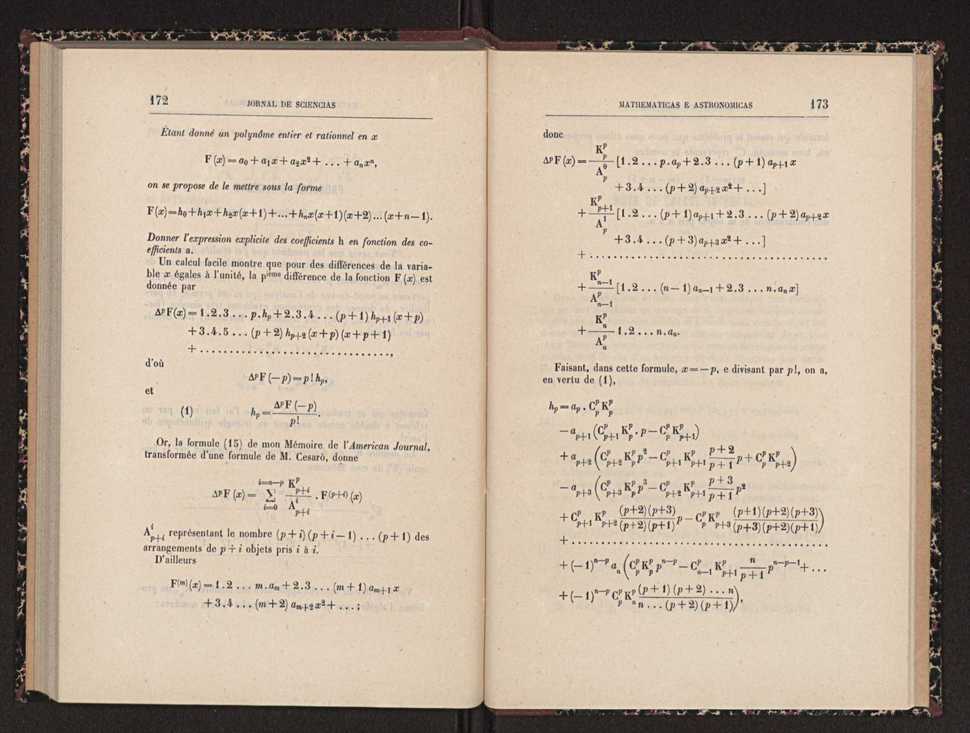 172 JORNAL DE SCIENCIAS
Étant donné un polynôme entier et rationnel en x
F (x) = a₀ + a₁x + a₂x² + . . . + aₙxⁿ,
on se propose de le mettre sous la forme
F(x)=h₀+h₁x+h₂x(x+1)+...+hₙx(x+1)(x+2)...(x+n−1).
Donner l'expression explicite des coefficients h en fonction des co-
efficients a.
Un calcul facile montre que pour des différences de la varia-
ble x égales à l'unité, la pième différence de la fonction F (x) est
donnée par
ΔᵖF(x) = 1.2.3 . . . p.hₚ + 2.3.4 . . . (p+1) hₚ₊₁ (x+p)
+ 3.4.5 . . . (p+2) hₚ₊₂ (x+p) (x+p+1)
+ . . . . . . . . . . . . . . . . . . . . . . . . . . . . . . ,
d'où
ΔᵖF (−p) = p! hₚ,
et
(1) hₚ = ΔᵖF (−p) / p! .
Or, la formule (15) de mon Mémoire de l'American Journal,
transformée d'une formule de M. Cesarò, donne
ΔᵖF (x) = Σ_{i=0}^{i=n−p} K^p_{p+i} / A^i_{p+i} . F^{(p+i)} (x)
A^i_{p+i} représentant le nombre (p + i) (p + i − 1) . . . (p + 1) des
arrangements de p ÷ i objets pris i à i.
D'ailleurs
F⁽ᵐ⁾(x) = 1.2 . . . m.aₘ + 2.3 . . . (m + 1) aₘ₊₁ x
+ 3.4 . . . (m+2) aₘ₊₂x² + . . . ;
MATHEMATICAS E ASTRONOMICAS 173
donc
ΔᵖF (x) = K^p_p / A^0_p [1.2 . . . p.aₚ + 2.3 . . . (p + 1) aₚ₊₁ x
+ 3.4 . . . (p + 2) aₚ₊₂ x² + . . .]
+ K^p_{p+1} / A^1_p [1.2 . . . (p + 1) aₚ₊₁ + 2.3 . . . (p + 2) aₚ₊₂ x
+ 3.4 . . . (p + 3) aₚ₊₃ x² + . . .]
+ . . . . . . . . . . . . . . . . . . . . . . . . . . . . . .
+ K^p_{n−1} / A^p_{n−1} [1.2 . . . (n − 1) aₙ₋₁ + 2.3 . . . n.aₙ x]
+ K^p_n / A^p_n 1.2 . . . n.aₙ.
Faisant, dans cette formule, x = — p, e divisant par p!, on a,
en vertu de (1),
hₚ = aₚ . C^p_p K^p_p
− a_{p+1} (C^p_{p+1} K^p_p . p − C^p_p K^p_{p+1})
+ a_{p+2} (C^p_{p+2} K^p_p p² − C^p_{p+1} K^p_{p+1} (p + 2)/(p + 1) p + C^p_p K^p_{p+2})
− a_{p+3} (C^p_{p+3} K^p_p p³ − C^p_{p+2} K^p_{p+1} (p + 3)/(p + 1) p²
+ C^p_{p+1} K^p_{p+2} (p+2)(p+3)/(p+2)(p+1) p − C^p_p K^p_{p+3} (p+1)(p+2)(p+3)/(p+3)(p+2)(p+1))
+ . . . . . . . . . . . . . . . . . . . . . . . . . . . . . .
+ (−1)^{n−p} a_n (C^p_p K^p_p p^{n−p} − C^p_{n−1} K^p_{p+1} n/(p + 1) p^{n−p−1} + . . .
+ (−1)^{n−p} C^p_p K^p_n (p + 1) (p + 2) . . . n / n . . . (p + 2) (p + 1)),